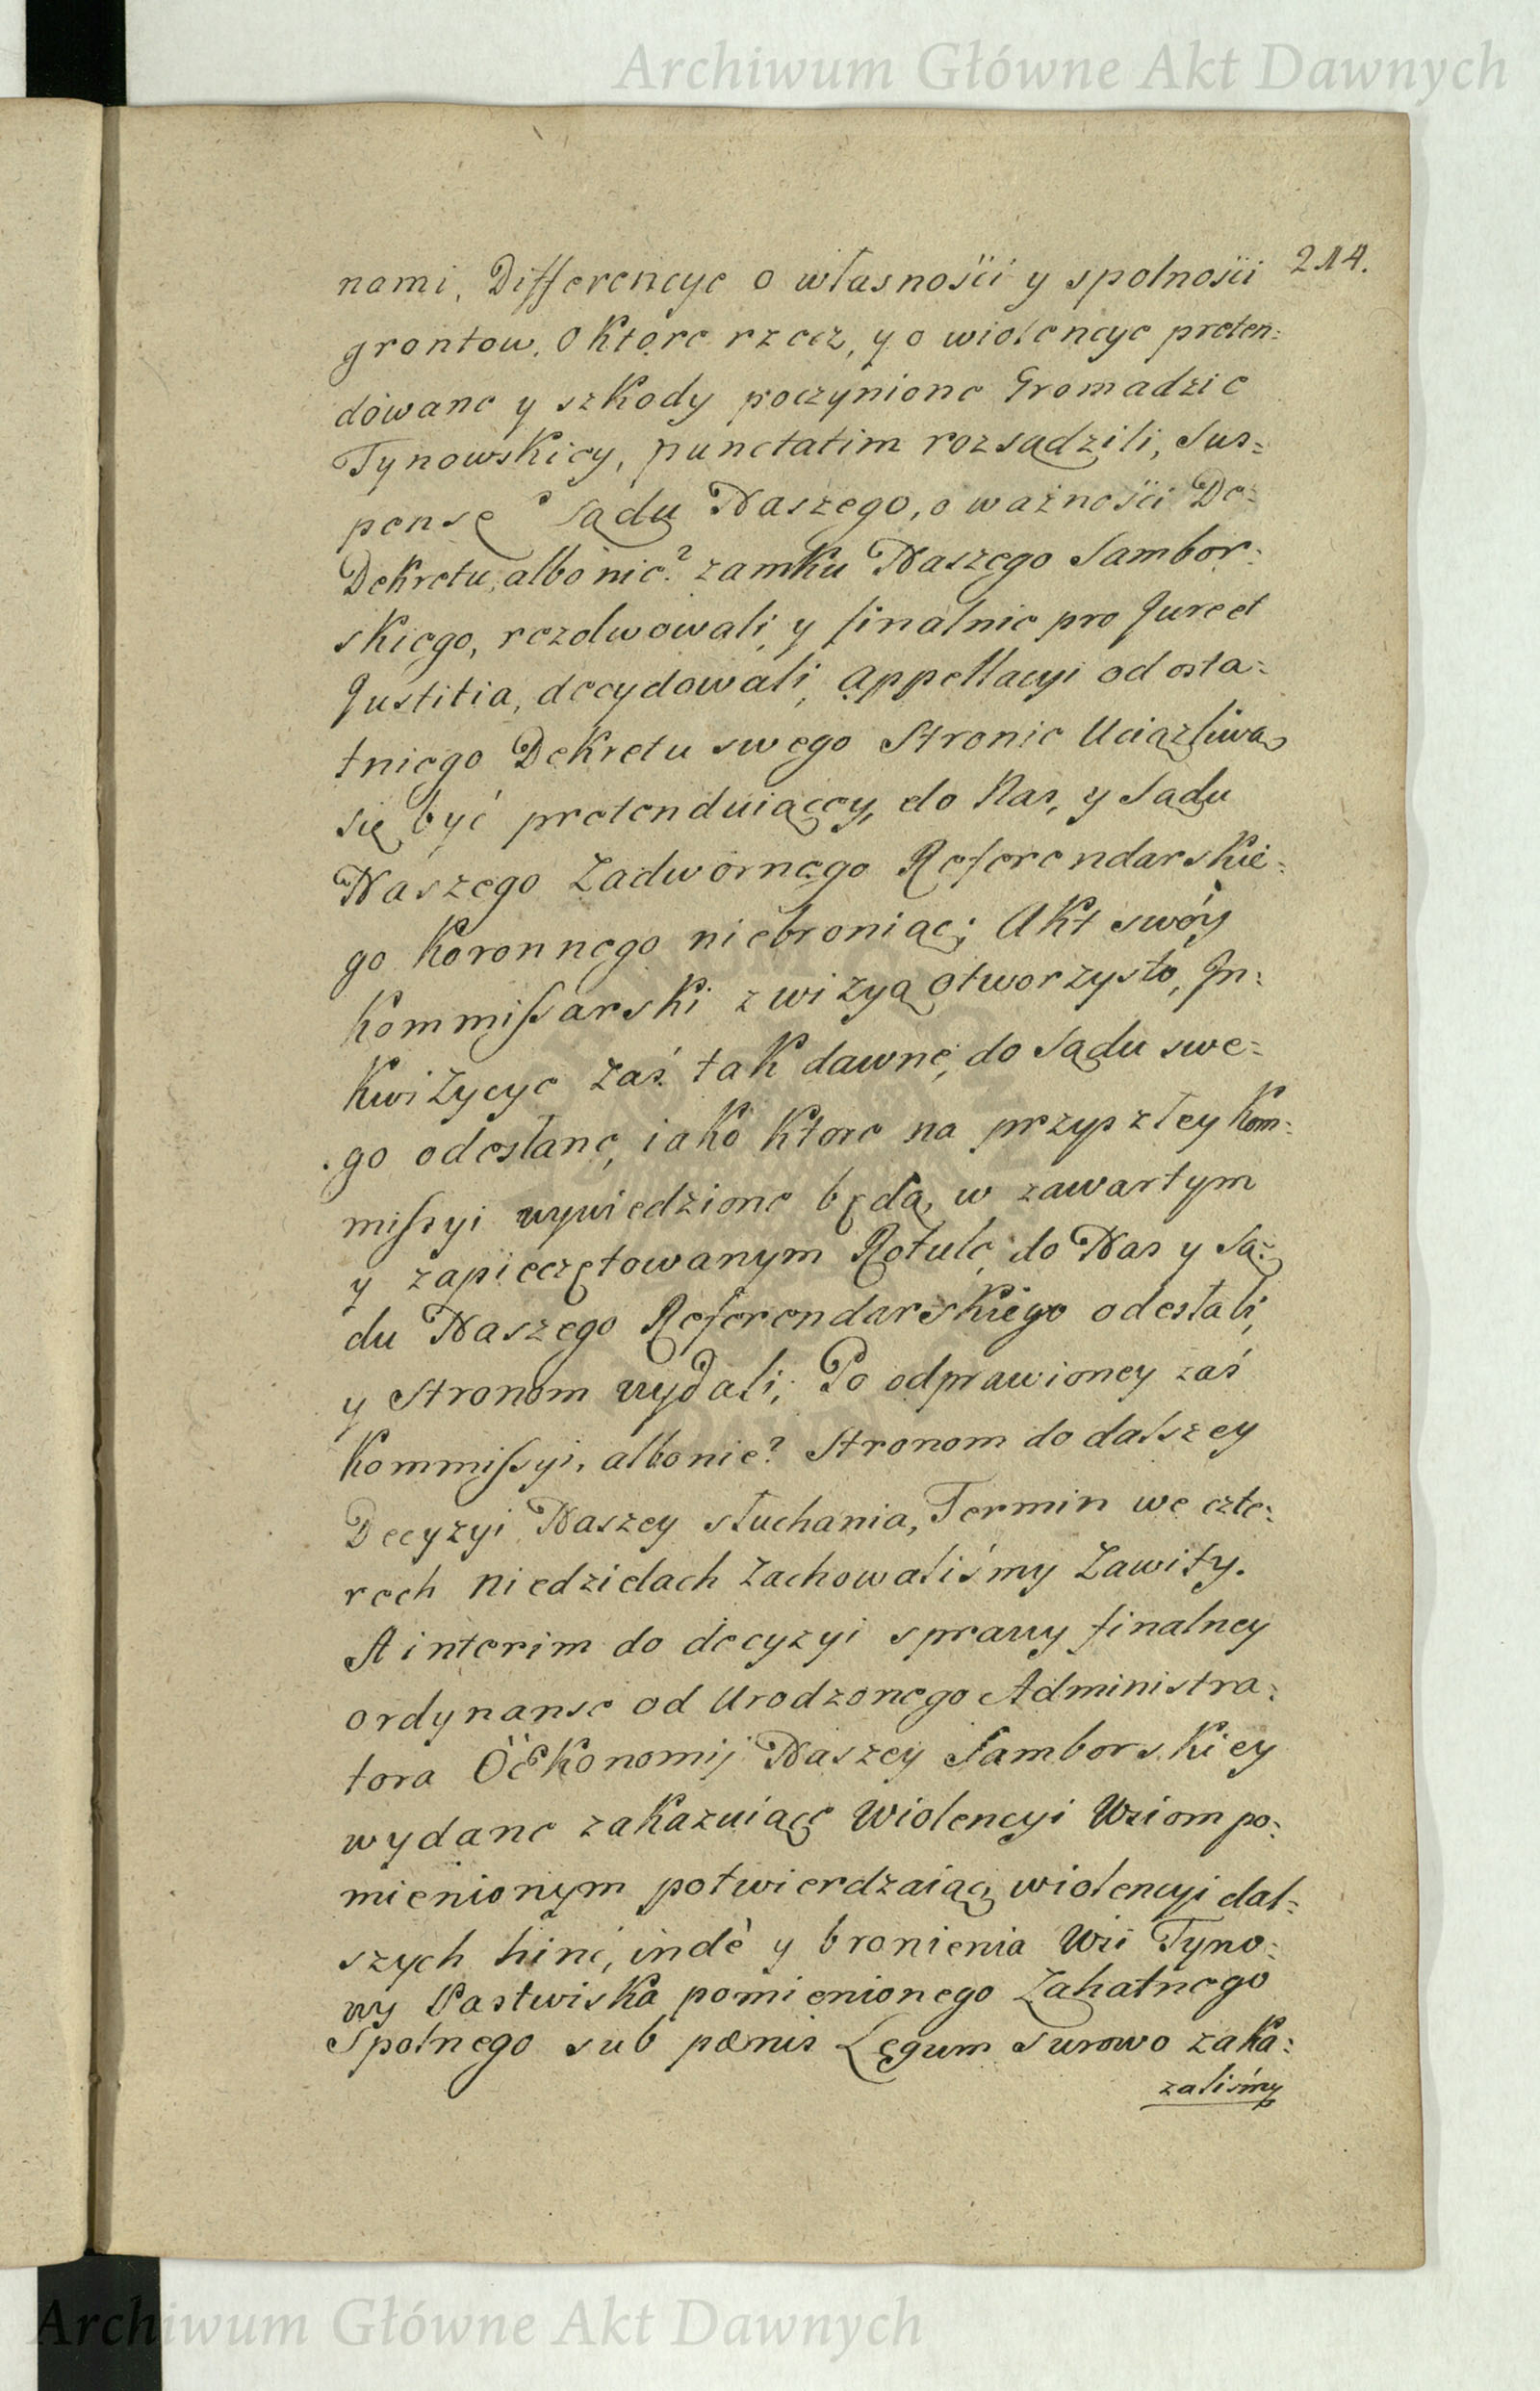 Archiwum Główne Akt Dawnych
214.
nami, Differencye o własności y spolności
grontow, o ktore rzecz, y o wiolencye preten:
dowane y szkody poczynione Gromadzie
Tynowskiey, punctatim rozsądzili, Sus:
pensę Sądu Naszego, o ważności De:
Dekretu, albo nie? zamku Naszego Sambor:
skiego, rezolwowali, y finalnie pro Jure et
Justitia, decydowali, Appellacyi od osta:
tniego Dekretu swego Stronie Uciążliwą
się być pretenduiącey, do Nas, y Sądu
Naszego Zadwornego Referendarskie:
go Koronnego niebroniąc; Akt swóy
Kommissarski z wizyą otworzysto, In:
kwizycye zaś tak dawne, do Sądu swe:
go odesłane, iako ktore na przyszłey Kom:
missyi wywiedzione będą, w zawartym
y zapieczętowanym Rotule, do Nas y Są:
du Naszego Referendarskiego odesłali,
y Stronom wydali; Po odprawioney zaś
Kommissyi, albo nie? Stronom do dalszey
Decyzyi Naszey słuchania, Termin we czte:
rech niedzielach zachowaliśmy Zawity.
A interim do decyzyi sprawy finalney
ordynanse od Urodzonego Administra:
tora Oëkonomij Naszey Samborskiey
wydane zakazuiące Wiolencyi Wsiom po:
mienionym potwierdzaiąc, wiolencyi dal:
szych hinc, indè y bronienia Wsi Tyno:
wy Pastwiska pomienionego Zahatnego
Spolnego sub pœnis Legum Surowo zaka:
zaliśmy
Archiwum Główne Akt Dawnych